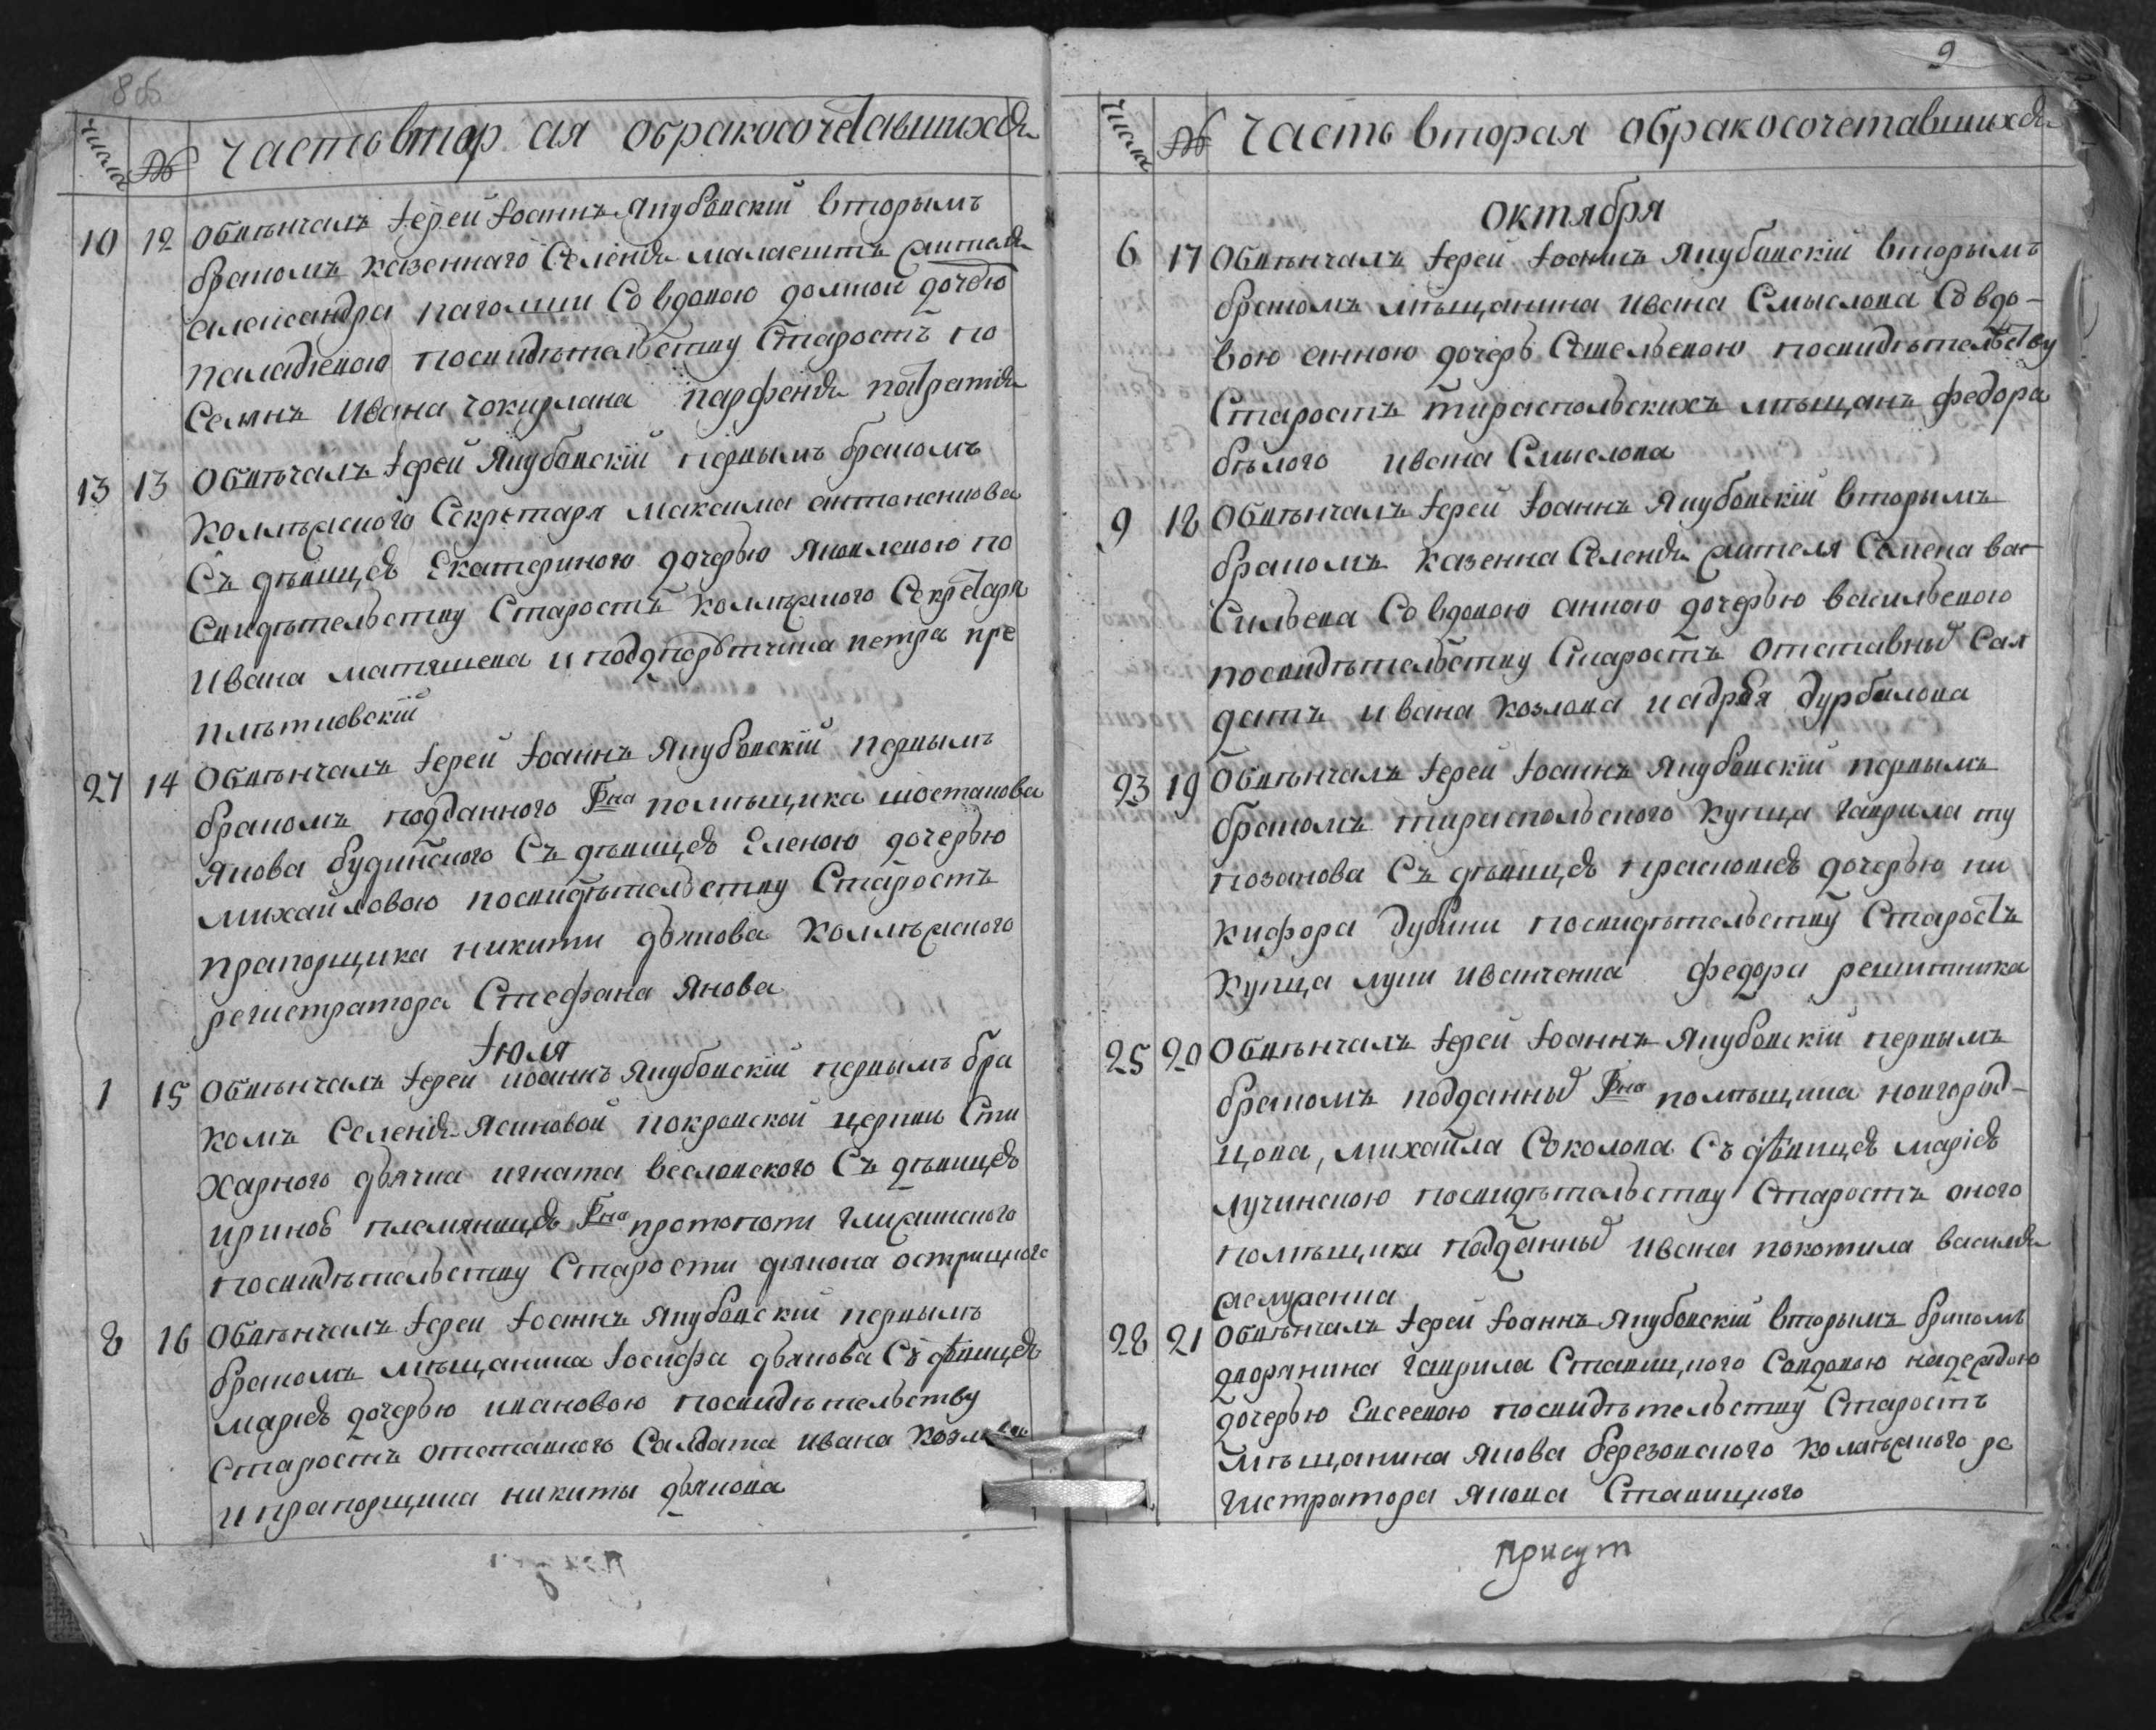 8об
Числа № Часть вторая обракосочетавшихся
10 12 Обвѣнчалъ іерей Іоаннъ Якубовскій вторымъ
бракомъ казеннаго Селенія малаештъ жителя
александра пагомии Со вдовою домною дочерю
паладіевою посвидѣтельству Старостъ по
Селянъ Ивана чокирлана парфенія
13 13 Обвѣнчалъ іерей Якубовскій первымъ бракомъ
Коллѣжского Секретаря максима антоненкова
Съ дѣвицею Екатериною дочерью Яковлевою по
Свидѣтельству Старостъ коллѣжского Секретаря
Ивана матяшева и петра пре
плѣтновскій
27 14 Обвѣнчалъ іерей Іоаннъ Якубовскій первымъ
бракомъ подданного Гдна помѣщика шостакова
Якова будинского Съ дѣвицею Еленою дочерью
михайловою посвидѣтельству Старостъ
прапорщика никити дьякова коллѣжского
регистратора Стефана Янова
Іюля
1 15 Обвѣнчалъ іерей иоаннъ Якубовскій первымъ бра
комъ Селенія Ясиновой покровской церкви Сти
харного дьячка игната веселовского Съ дѣвицею
ириною племяницею Гдна протопопи глижинского
посвидѣтельству Старости дьякона острицкого
8 16 Обвѣнчалъ іерей Іоаннъ Якубовскій первымъ
бракомъ мѣщанина Іосифа дьякова Съ дѣвицею
маріею дочерью ивановою посвидѣтельству
Старостъ отставного Салдата ивана козлова
и прапорщика никиты дьякова
9
Числа № Часть вторая обракосочетавшихся
Октября
6 17 Обвѣнчалъ іерей Іоаннъ Якубовскій вторымъ
бракомъ мѣщанина ивана Смыслова Со вдо-
вою анною дочерь Савельевою посвидѣтельству
Старостъ тираспольскихъ мѣщанъ федора
бѣлого ивана Смыслова
9 18 Обвѣнчалъ іерей Іоаннъ Якубовскій вторымъ
бракомъ казенна Селенія жителя Семена ва
Сильева Со вдовою анною дочерью васильевою
посвидѣтельству Старостъ отставныхъ Сал
датъ ивана козлова иадрея дурбалова
23 19 Обвѣнчалъ іерей Іоаннъ Якубовскій первымъ
бракомъ тираспольского купца гаврила ту
позанова Съ дѣвицею прасковіею дочерью ни
кифора дубини посвидѣтельству Старостъ
купца луки иванченка федора решитника
25 20 Обвѣнчалъ іерей Іоаннъ Якубовскій первымъ
бракомъ подданныхъ Гдна помѣщика новгород-
цова, михаила Соколова Съ дѣвицею маріею
лучинскою посвидѣтельству Старостъ оного
помѣщика подданныхъ ивана покотила василія
желуженка
28 21 Обвѣнчалъ іерей Іоаннъ Якубовскій вторымъ бракомъ
дворянина гаврила Ставицкого Совдовою надеждою
дочерью Евсеевою посвидѣтельству Старостъ
мѣщанина якова березовского колѣжского ре
гистратора якова Ставицкого
Присут